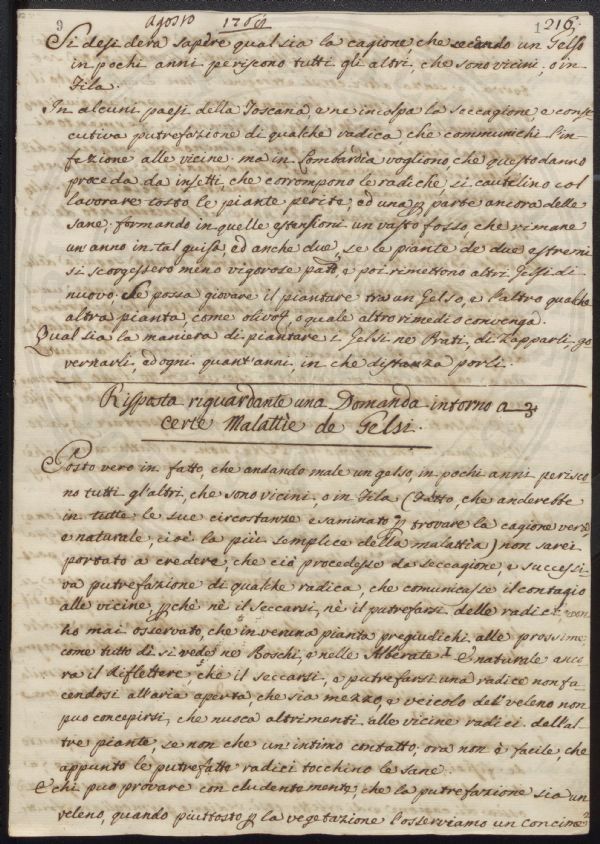 9 agosto 1764 1 216.
Si desidera sapere qual sia la cagione, che seccando un Gelso
in pochi anni periscono tutti gli altri, che sono vicini, o in
Fila.
In alcuni paesi della Toscana, e ne incolpa la seccagione e conse
cutiva putrefazione di qualche radica, che communichi l'in-
fezione alle vicine. ma in Lombardia vogliono, che questo danno
proceda da insetti, che corrompono le radiche, si cautelino col
lavorare tosto le piante perite, ed una ꝑ parte ancora delle
sane; formando in quelle estensioni un vasto fosso, che rimane
un'anno in tal guisa, ed anche due, se le piante de due estremi
si scorgessero meno vigorose, e poi rimettono altri Gelsi di
nuovo. Se possa giovare il piantare tra un Gelso, e l'altro qualche
altra pianta, come olivo, o quale altro rimedio convenga.
Qual sia la maniera di piantare i Gelsi ne Prati, di Zapparli, go
vernarli, ad ogni quant'anni, in che distanza porli.
Risposta riguardante una Domanda intorno a
certe Malattie de Gelsi.
Posto vero in fatto, che andando male un gelso, in pochi anni perisco
no tutti gl'altri, che sono vicini, o in Fila (Fatto, che anderebbe
in tutte le sue circostanze esaminato ꝑ trovare la cagione vera,
e naturale, cioè la più semplice della malattia) non sarei
portato a credere, che ciò procedesse da seccagione, e successi-
va putrefazione di qualche radica, che comunicasse il contagio
alle vicine, ꝑchè nè il seccarsi, nè il putrefarsi delle radici non
ho mai osservato, che in veruna pianta pregiudichi alle prossime
come tutto di si vede ne Boschi, e nelle Alberate. E naturale anco
ra il riflettere, che il seccarsi, o putrefarsi una radice non fa-
cendosi all'aria aperta, che sia mezzo, e veicolo del veleno non
può concepirsi, che nuoca altrimenti alle vicine radici dell'al
tre piante, se non che un'intimo contatto, ora non è facile, che
appunto le putrefatte radici tocchino le sane.
E chi può provare concludentemente, che la putrefazione sia un
veleno, quando piuttosto ꝑ la vegetazione l'osserviamo un concime?